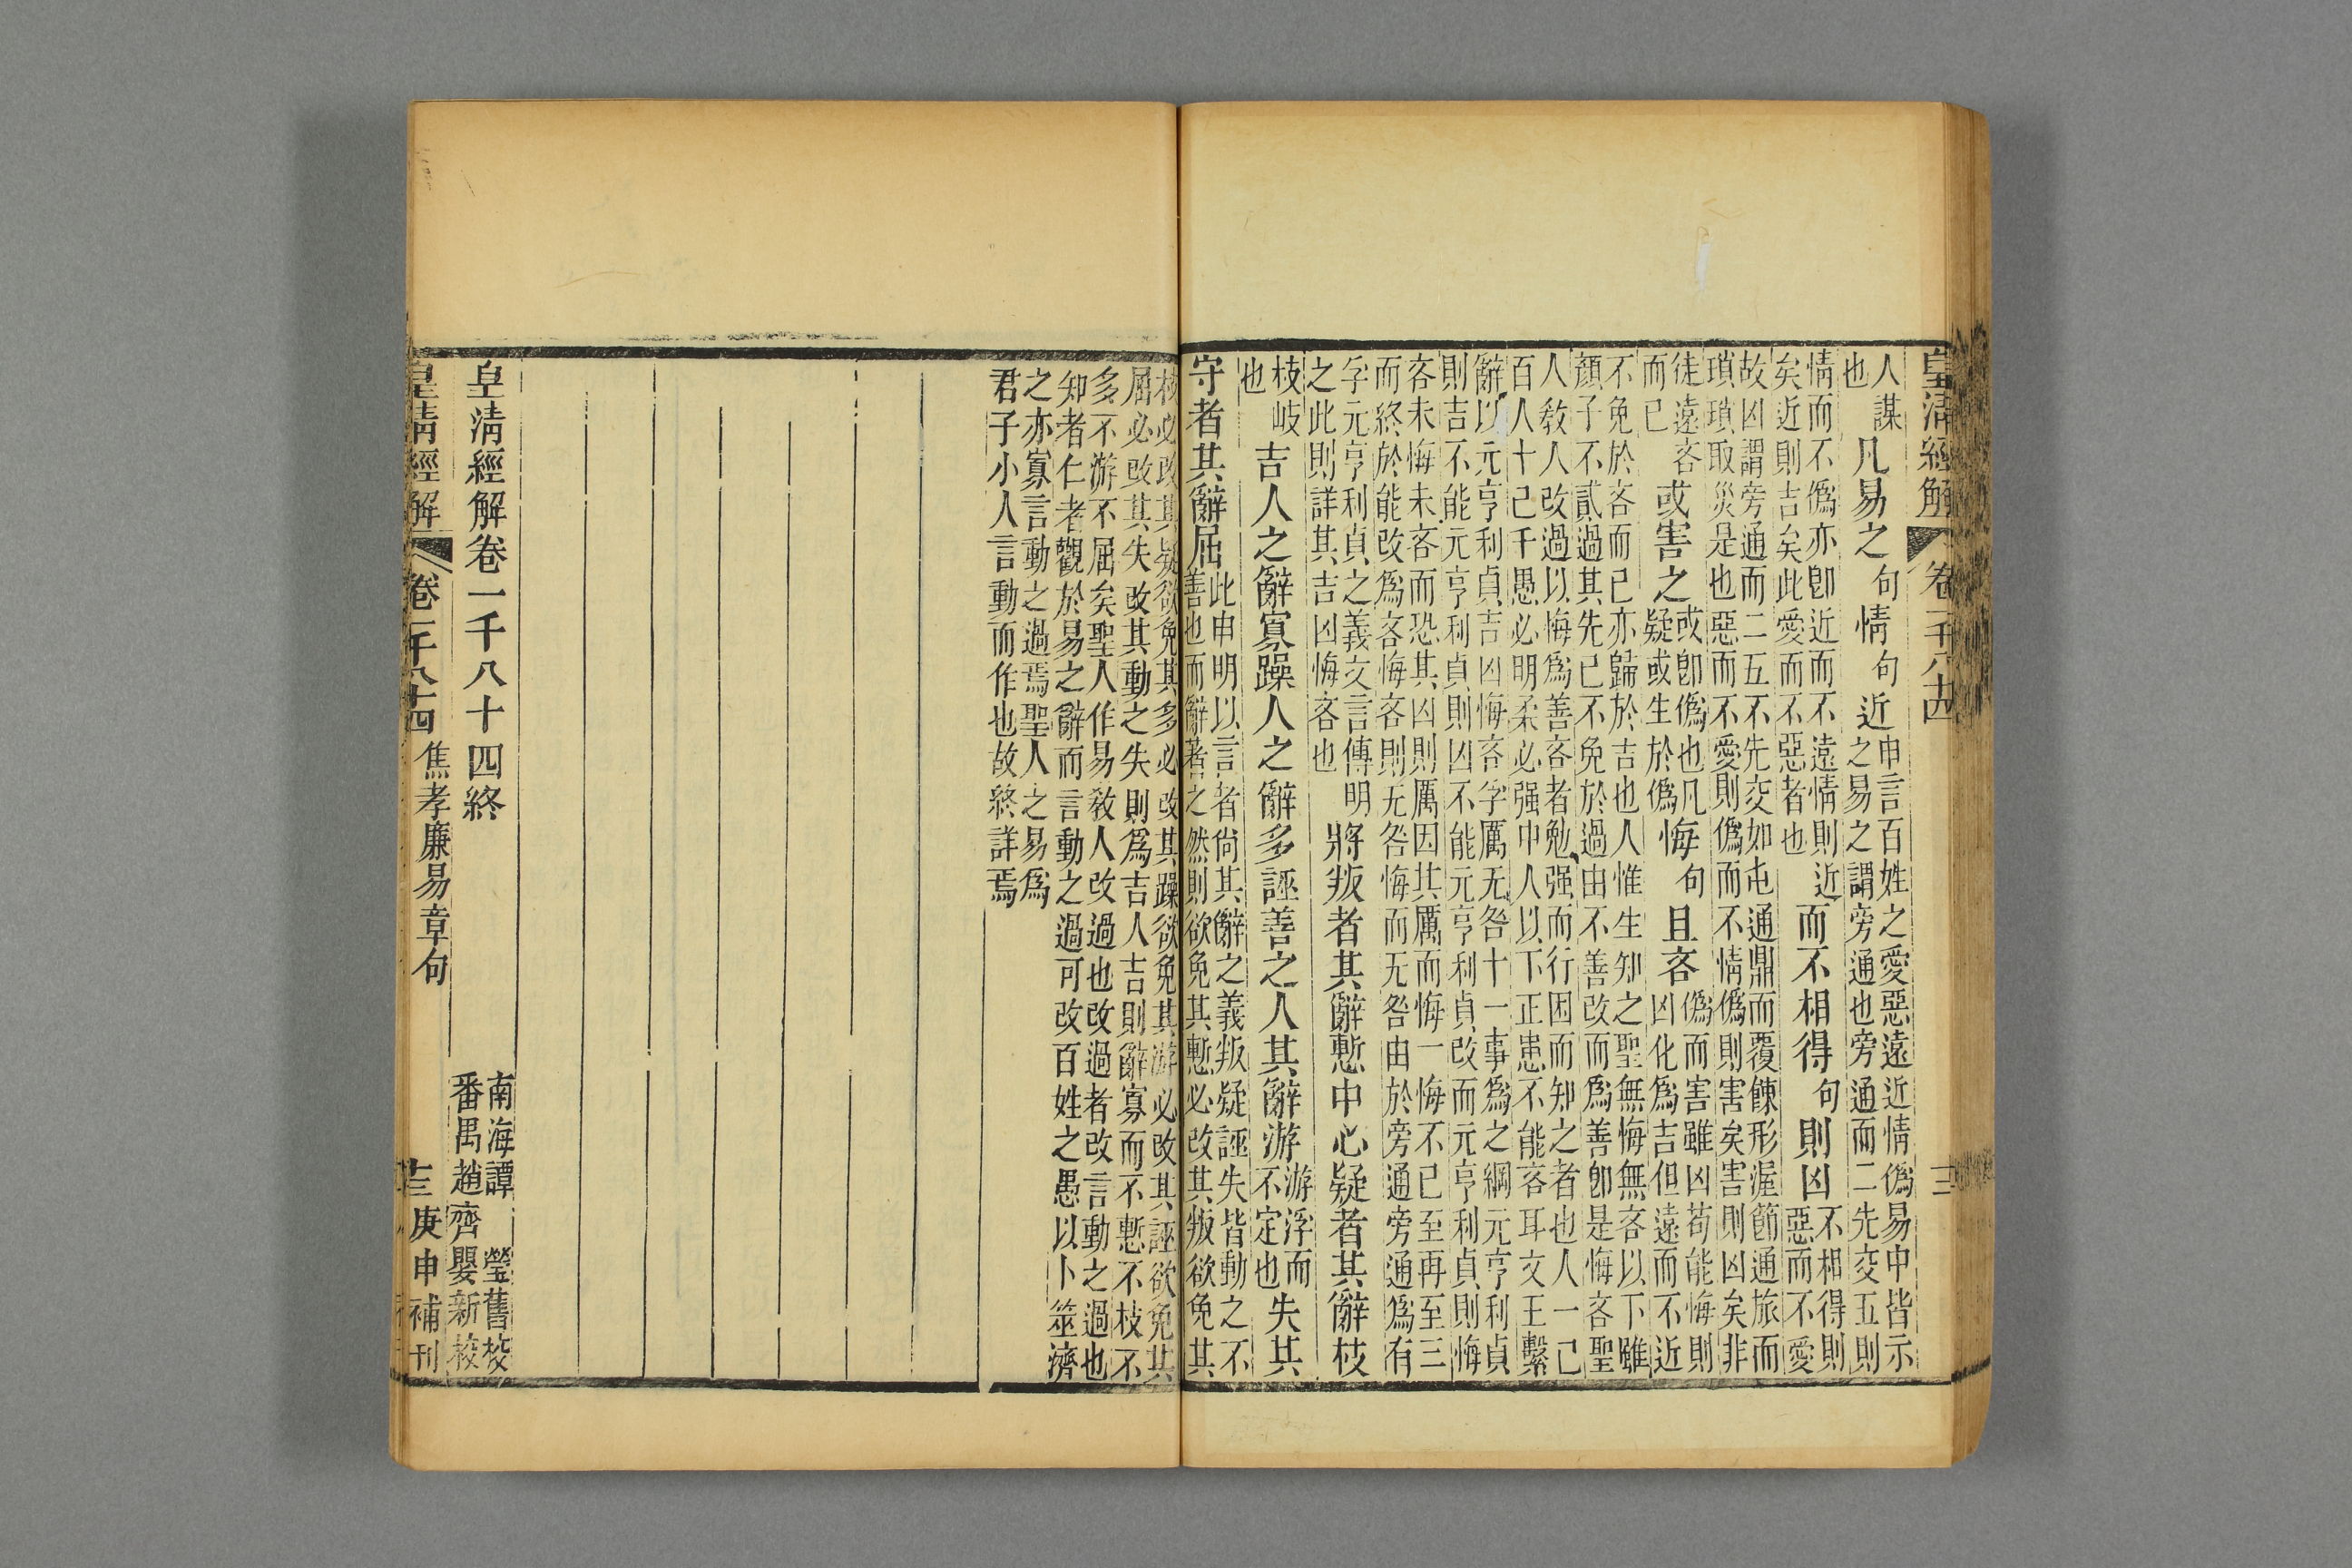 皇清經解 卷一千八十四 三
人謀
也
凡易之 句 情 句 近
申言百姓之愛惡遠近情僞易中皆示
之易之謂旁通也旁通而二先交五則
情而不僞亦卽近而不遠情則近
矣近則吉矣此愛而不惡者也
而不相得 句 則凶
不相得則
惡而不愛
故凶謂旁通而二五不先交如屯通鼎而覆餗形渥節通旅而
瑣瑣取災是也惡而不愛則僞而不情僞則害矣害則凶矣非
徒遠吝
而已
或害之
或卽僞也凡
疑或生於僞
悔 句 且吝
僞而害雖凶苟能悔則
凶化爲吉但遠而不近
不免於吝而已亦歸於吉也人惟生知之聖無悔無吝以下雖
顏子不貳過其先已不免於過由不善改而爲善卽是悔吝聖
人敎人改過以悔爲善吝者勉强而行困而知之者也人一己
百人十己千愚必明柔必强中人以下正患不能吝耳文王繫
辭以元亨利貞吉凶悔吝孚厲无咎十一事爲之綱元亨利貞
則吉不能元亨利貞則凶不能元亨利貞改而元亨利貞則悔
吝未悔未吝而恐其凶則厲因其厲而悔一悔不已至再至三
而終於能改爲吝悔吝則无咎悔而无咎由於旁通旁通爲有
孚元亨利貞之義文言傳明
之此則詳其吉凶悔吝也
將叛者其辭慙中心疑者其辭枝
枝岐
也
吉人之辭寡躁人之辭多誣善之人其辭游
游浮而
不定也
失其
守者其辭屈
此申明以言者尚其辭之義叛疑誣失皆動之不
善也而辭著之然則欲免其慙必改其叛欲免其
枝必改其疑欲免其多必改其躁欲免其游必改其誣欲免其
屈必改其失改其動之失則爲吉人吉則辭寡而不慙不枝不
多不游不屈矣聖人作易敎人改過也改過者改言動之過也
知者仁者觀於易之辭而言動之過可改百姓之愚以卜筮濟
之亦寡言動之過焉聖人之易爲
君子小人言動而作也故終詳焉
皇淸經解卷一千八十四終
南海譚 瑩舊校
番禺趙齊嬰新校
皇清經解 卷一千八十四 焦孝廉易章句 十三 庚申補刊